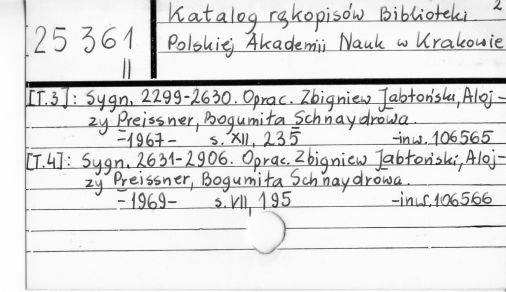 2
25 361
II
Katalog rękopisów Biblioteki
Polskiej Akademii Nauk w Krakowie
[T.3]: Sygn. 2299-2630. Oprac. Zbigniew Jabłoński, Aloj-
zy Preissner, Bogumiła Schnaydrowa.
-1967- s. XII, 235 -inw. 106565
[T.4]: Sygn. 2631-2906. Oprac. Zbigniew Jabłoński, Aloj-
zy Preissner, Bogumiła Schnaydrowa.
-1969- s. VII, 195 -inw. 106566